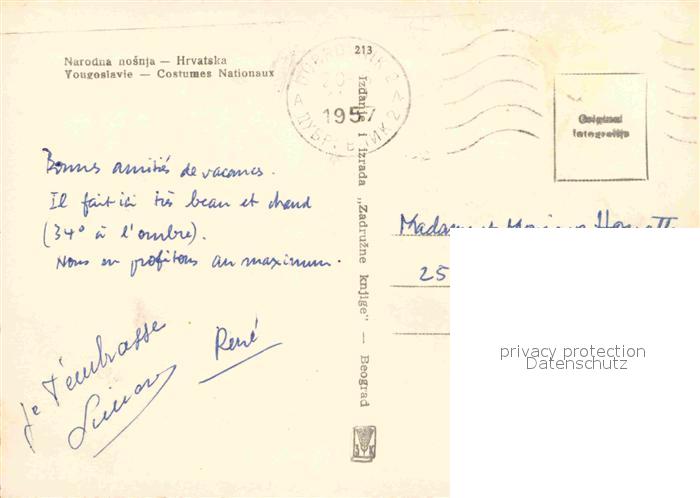 Narodna nošnja — Hrvatska
Yougoslavie — Costumes Nationaux
213
DUBROVNIK 2
1957
ДУБРОВНИК 2
Original
fotografija
Bonnes amitiés de vacances.
Il fait ici très beau et chaud
(34° à l'ombre).
Nous en profitons au maximum.
Je t'embrasse
Simon
René
Izdanje i izrada „Zadružne knjige" — Beograd
Madame et Monsieur
25
privacy protection
Datenschutz